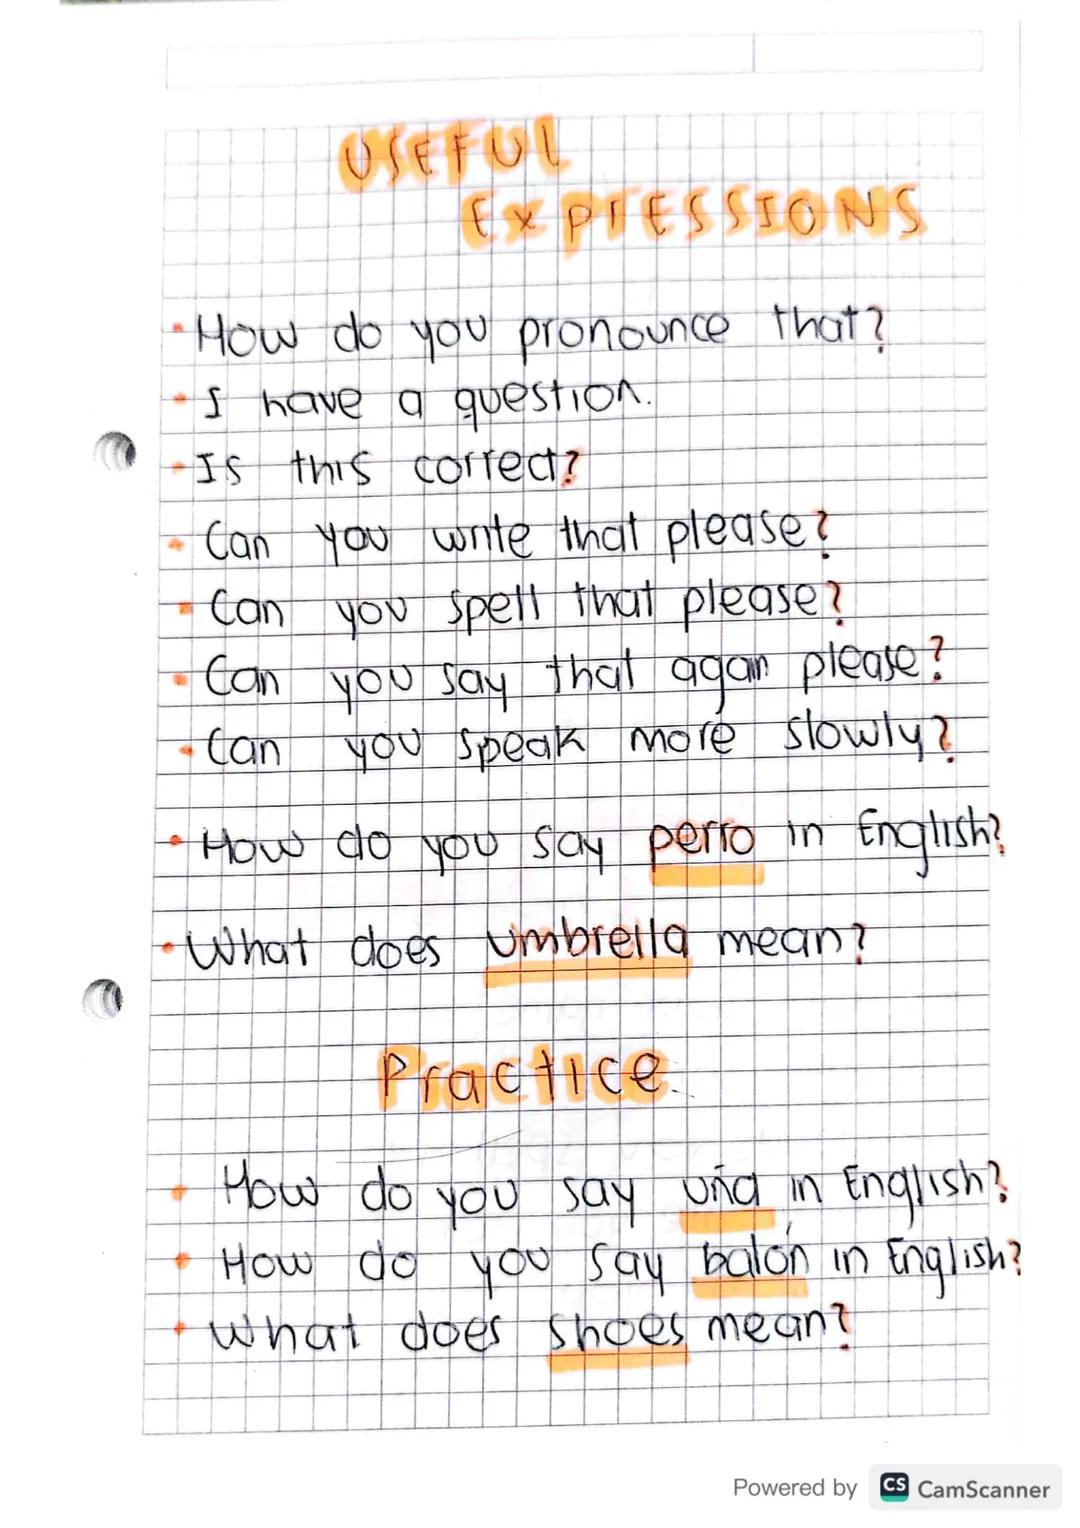 USEFUL
EXPRESSIONS
• How do you pronounce that?
• I have a question.
• Is this correct?
• Can you write that please?
• Can you spell that please?
• Can you say that agan please?
• Can you speak more slowly?
• How do you say perro in English?
• What does umbrella mean?
Practice
• How do you say uña in English?
• How do you say balón in English?
• What does shoes mean?
Powered by CS CamScanner